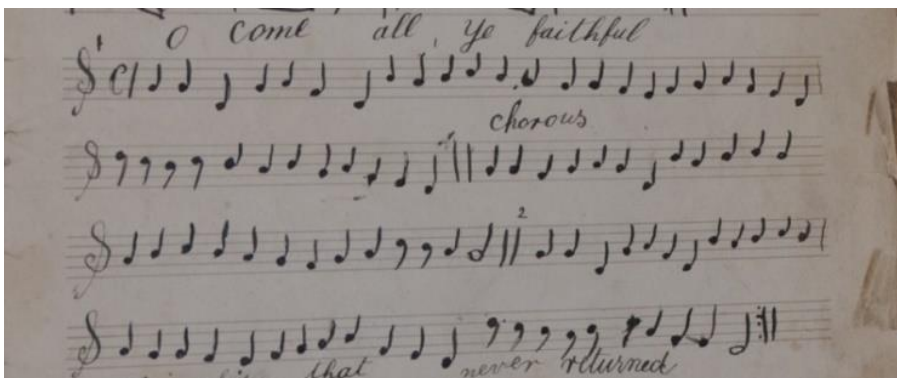 O come all, ye faithful
1
chorous
2
that never returned